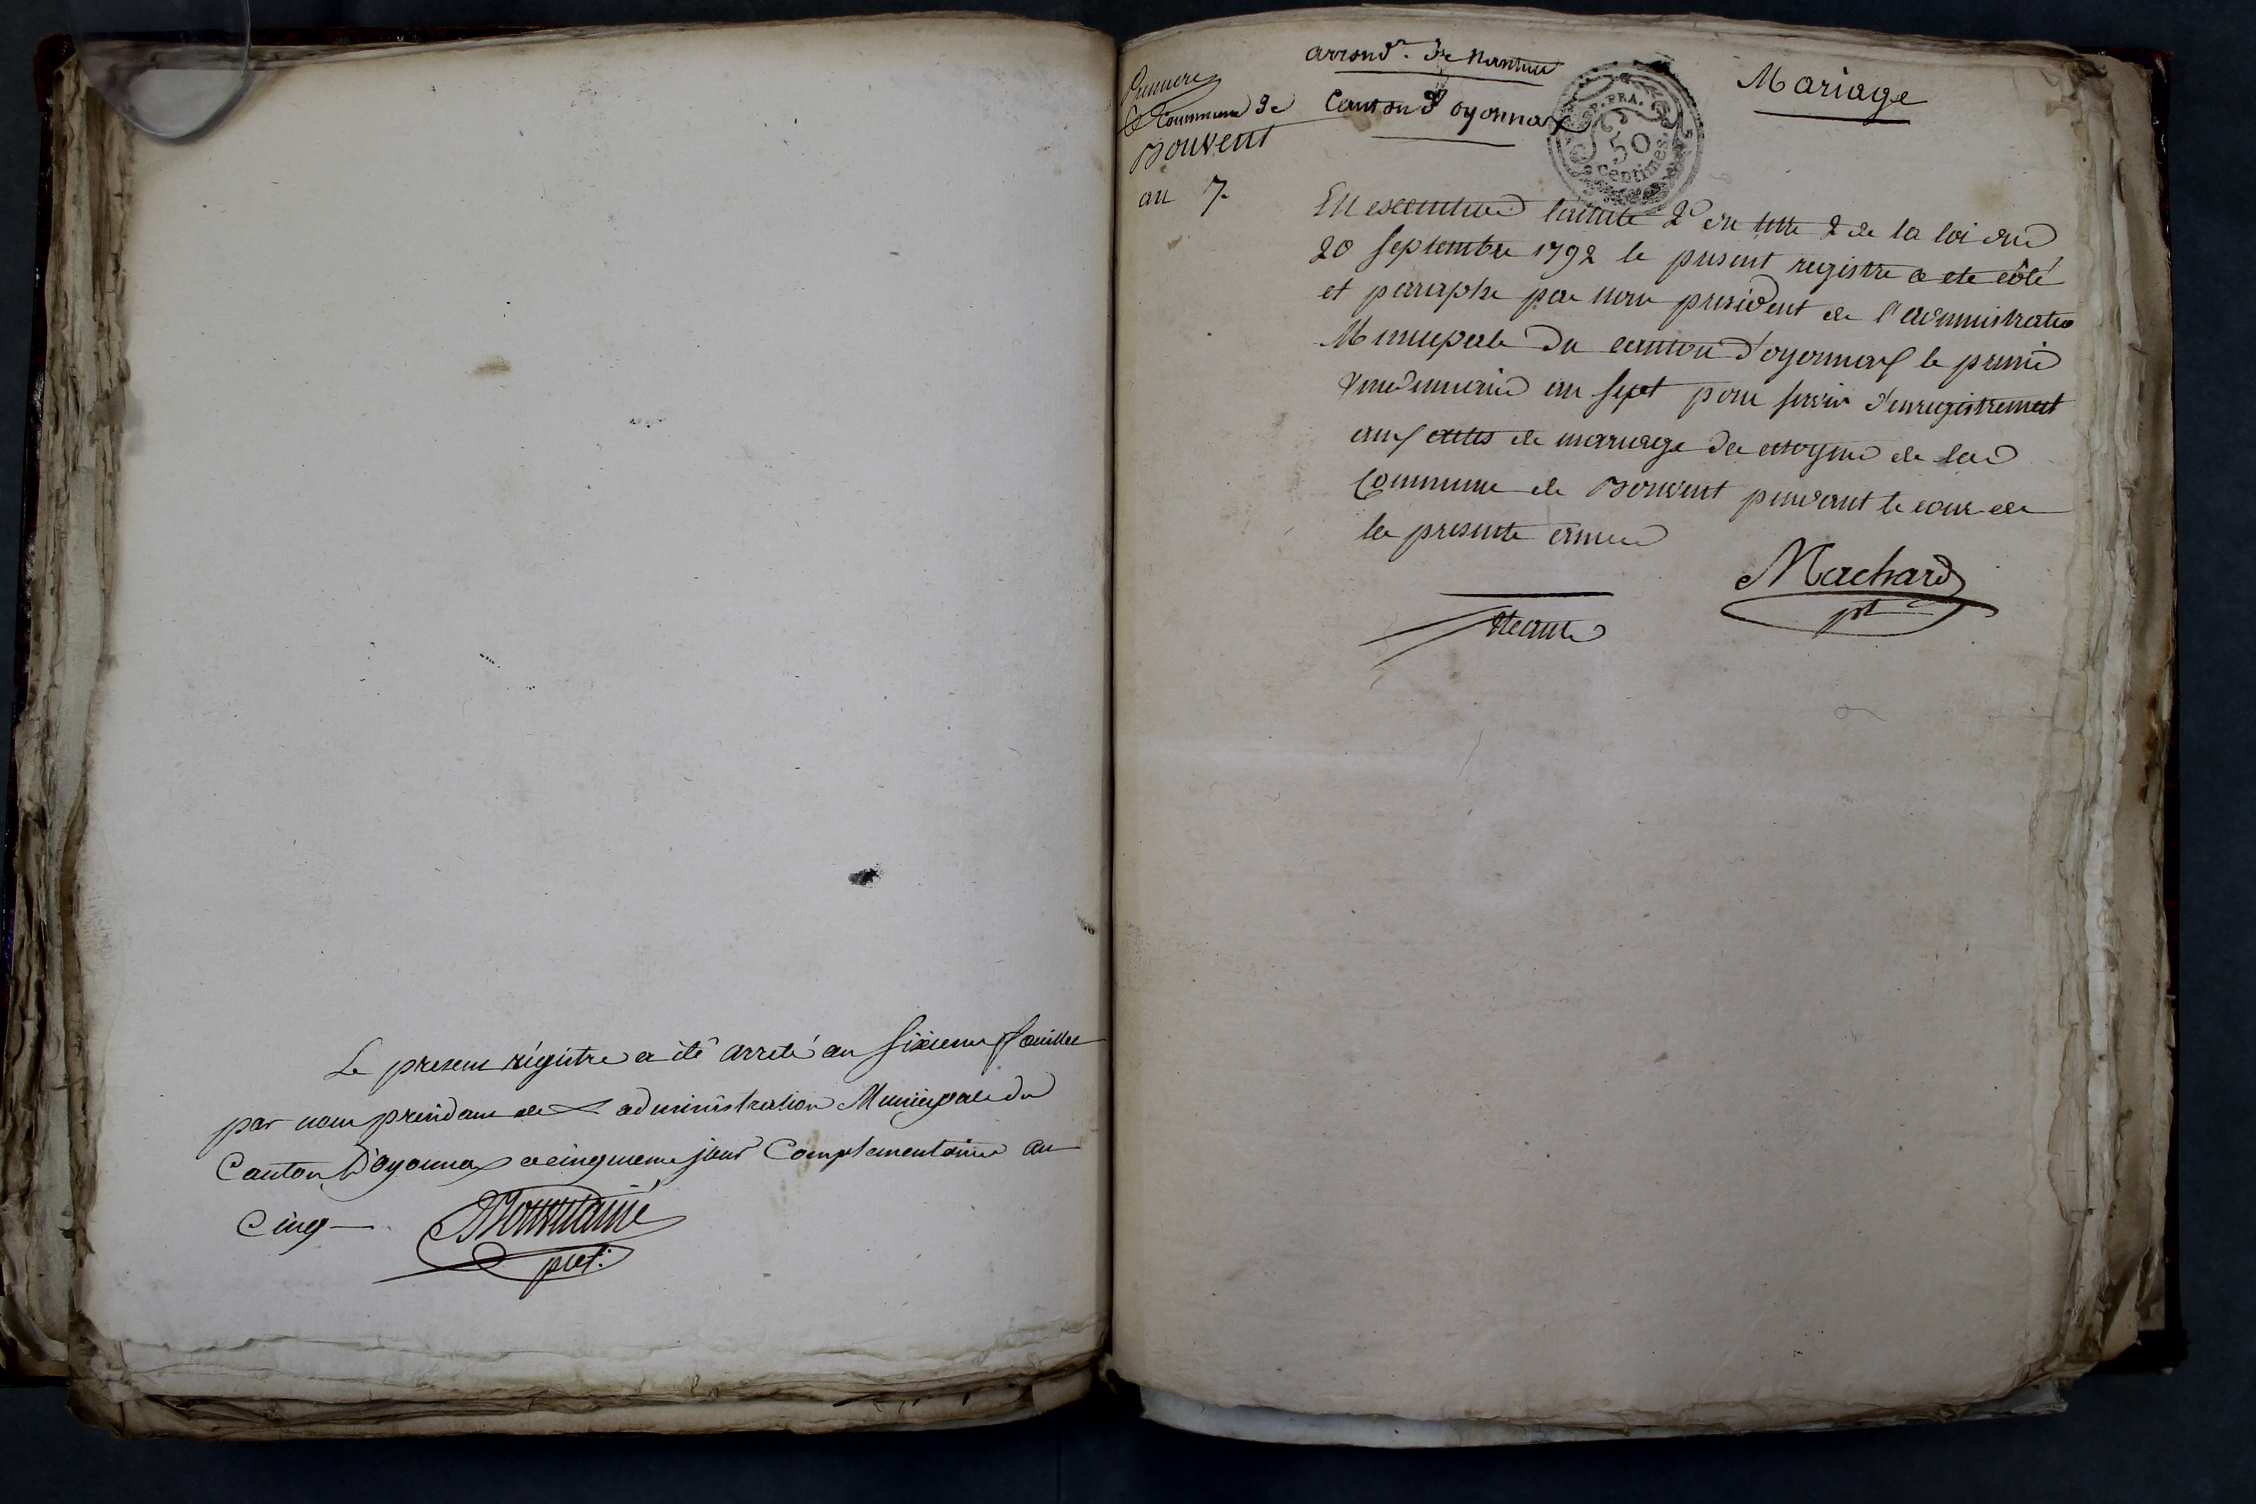 Le present régistre a été arreté au sixieme feuillet
par nous president de l'administration Municipale du
Canton d'oyonnax ce cinquieme jour Complementaire an
Cinq
prest.
premiere
Commune de
Bouvent
an 7.
arrond.t de Nantua
Canton d'oyonnax
Mariage
50
Centimes.
En execution l'article 2 du titre 2 de la loi du
20 septembre 1792 le present registre a eté côté
et paraphe par nous president de l'administratio
Municipale du canton d'oyonnax le premier
vendemiaire an sept pour servir d'enregistrement
aux actes de mariage des citoyens de la
Commune de Bouvent pendant le cour de
la presente année
Machard
pt
Neant